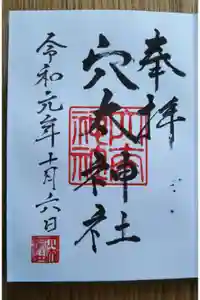 奉拝
穴太神社
令和元年十月六日